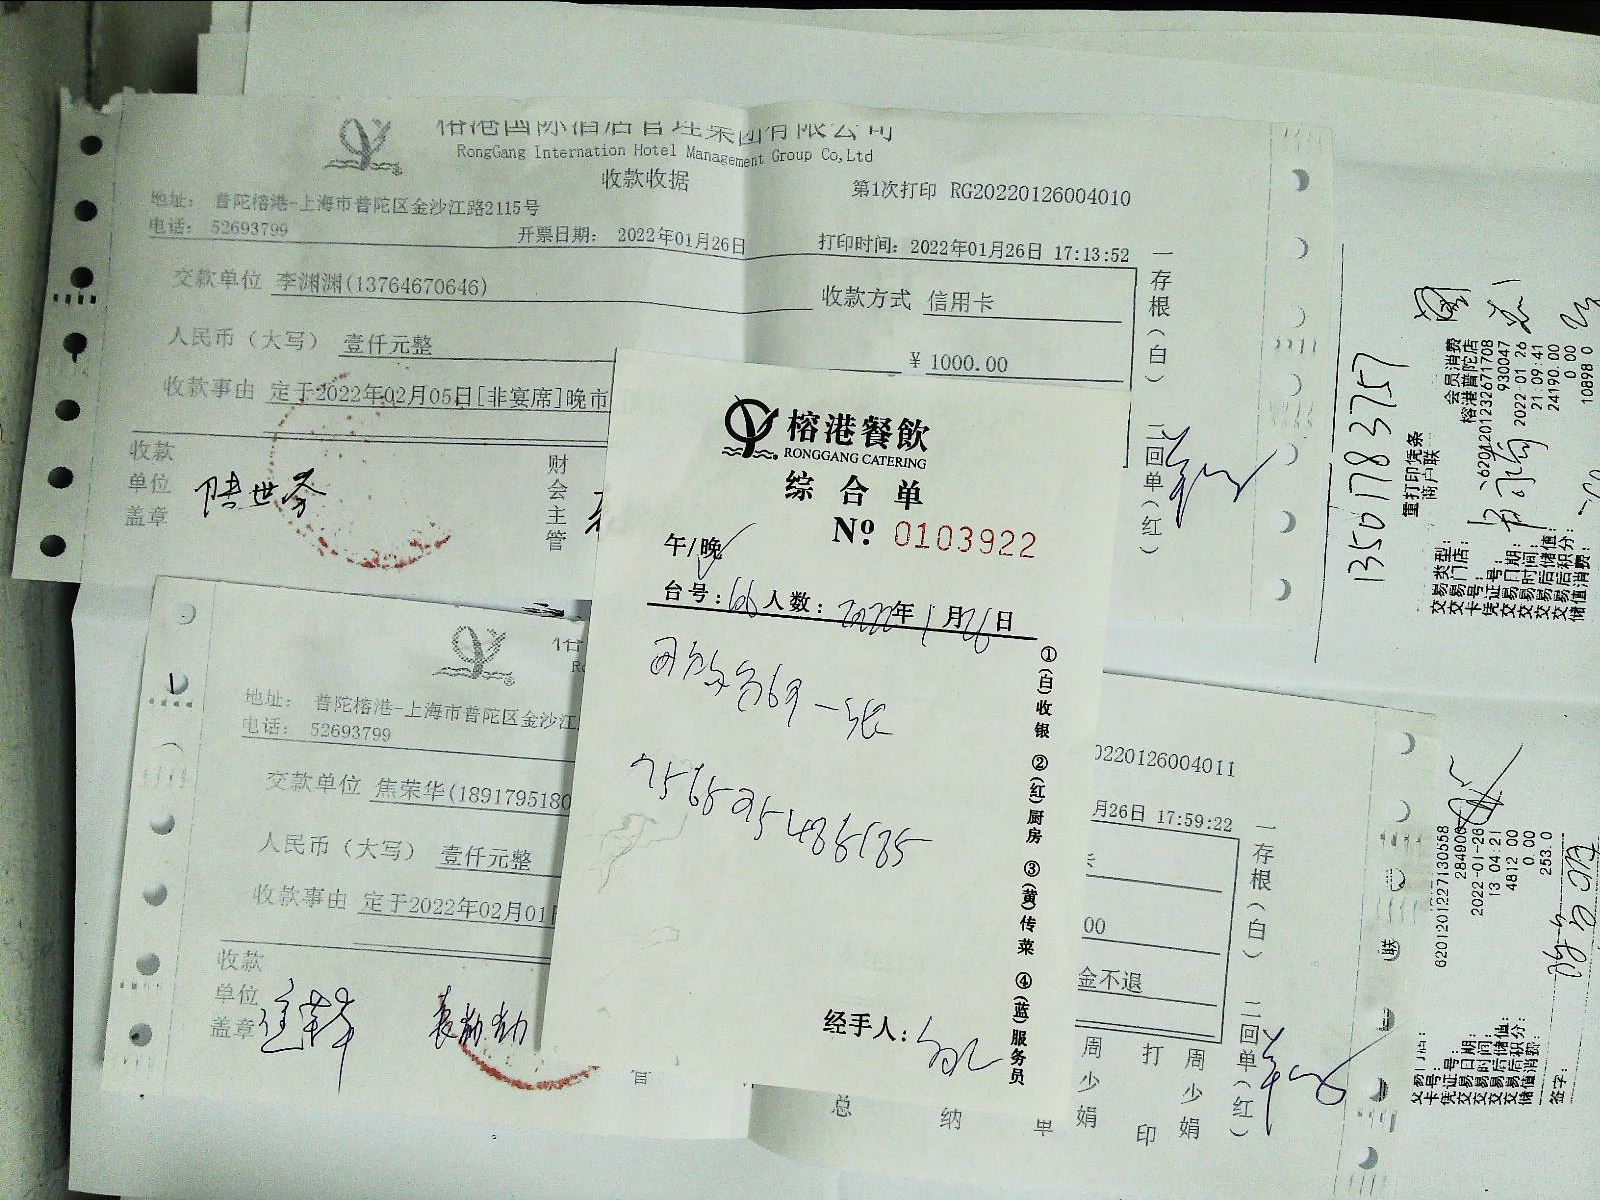 榕港国际酒店管理集团有限公司
RongGang Internation Hotel Management Group Co,Ltd
收款收据
第1次打印 RG20220126004010
地址: 普陀榕港-上海市普陀区金沙江路2115号
电话: 52693799
开票日期: 2022年01月26日
打印时间: 2022年01月26日 17:13:52
交款单位 李渊渊(13764670646)
收款方式 信用卡
人民币(大写) 壹仟元整
¥ 1000.00
收款事由 定于2022年02月05日[非宴席]晚市
收款
单位
盖章
陆世芬
财会主管
一存根(白) 二回单(红)
榕港餐飲
RONGGANG CATERING
综合单
№ 0103922
午/晚
台号: 66 人数: 2022年1月26日
①(白)收银 ②(红)厨房 ③(黄)传菜 ④(蓝)服务员
经手人:
地址: 普陀榕港-上海市普陀区金沙江
电话: 52693799
交款单位 焦荣华(1891795180
人民币(大写) 壹仟元整
收款事由 定于2022年02月01
收款
单位
盖章
0220126004011
月26日 17:59:22
00
金不退
一存根(白) 二回单(红)
周少娟
打印
周少娟
总
纳
13501783757
重打印凭条
商户联
交易类型: 会员消费
交易门店: 榕港普陀店
卡号: 6201201232671708
凭证号: 930047
交易日期: 2022 01 26
交易时间: 21 09 41
交易后储值: 24190.00
交易后积分: 0.00
储值消费: 10898 0
卡号: 6201201227130558
凭证号: 284906
交易日期: 2022-01-26
交易时间: 13 04 21
交易后储值: 4812 00
交易后积分: 0.00
储值消费: 253.0
签字: